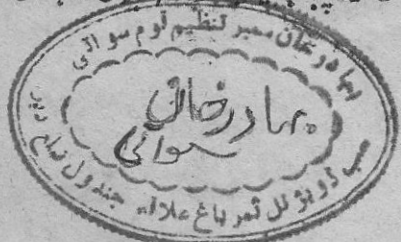 بہادر خان ممبر تنظیم قوم سواتی
بہادر خان
سواتی
سب ڈویژنل ثمر باغ علاقہ جندول ضلع